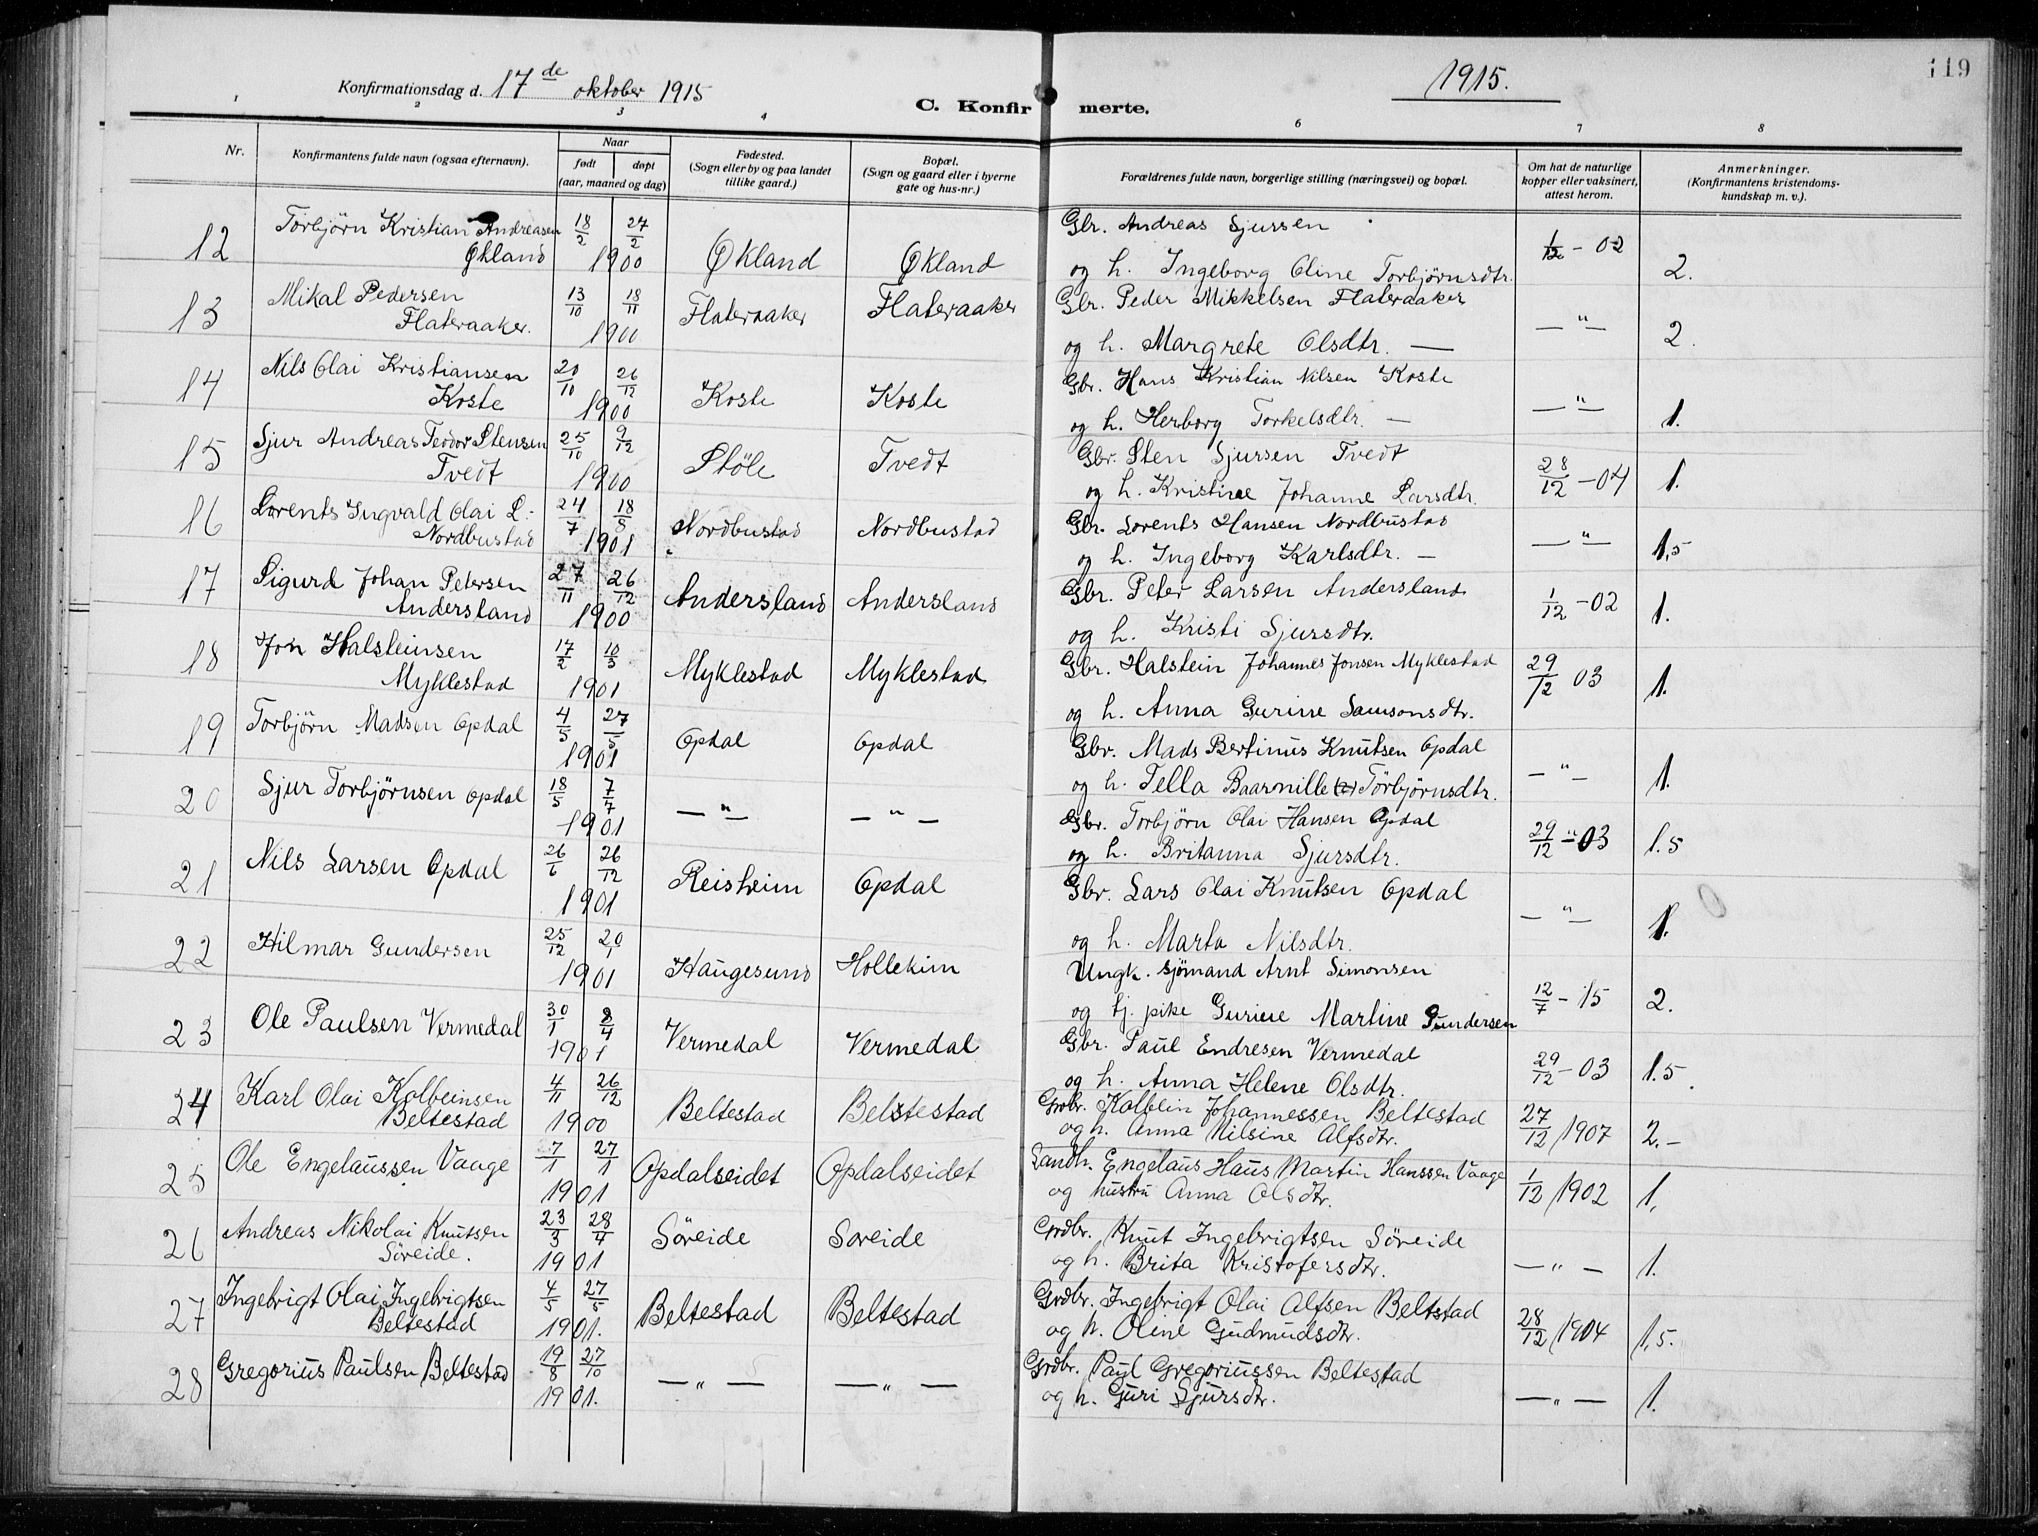 Konfirmationsdag d. 17de oktober 1915
C. Konfirmerte.
1915.
119
1 2 3 4 6 7 8
Nr.
Konfirmantens fulde navn (ogsaa efternavn).
Naar
født døpt
(aar, maaned og dag)
Fødested.
(Sogn eller by og paa landet
tillike gaard.)
Bopæl.
(Sogn og gaard eller i byerne
gate og hus-nr.)
Forældrenes fulde navn, borgerlige stilling (næringsvei) og bopæl.
Om hat de naturlige
kopper eller vaksinert,
attest herom.
Anmerkninger.
(Konfirmantens kristendoms-
kundskap m. v.).
12 Torbjörn Kristian Andreasen 18/2 27/2 Gbr. Andreas Sjurssen
Økland 1900 Økland Økland og h. Ingeborg Oline Torbjørnsdtr. 1/12 - 02 2.
13 Mikal Pedersen 13/10 18/11 Flateraaker Flateraaker Gbr. Peder Mikkelsen Flateraaker
Flateraaker. 1900 og h. Margrete Olsdtr. — — " — 2.
14 Nils Olai Kristiansen 20/10 26/12 Gbr. Hans Kristian Nilsen Koste
Koste 1900 Koste Koste og h. Herborg Torkelsdtr. — — " — 1.
15 Sjur Andreas Teodor Stensen 25/10 9/12 Gbr. Sten Sjursen Tvedt
Tvedt 1900 Stöle Tvedt og h. Kristine Johanne Larsdtr. 28/12 - 04 1.
16 Lorents Ingvald Olai L. 24/7 18/8 Gbr. Lorents Hansen Nordbustad
Nordbustad 1901 Nordbustad Nordbustad og h. Ingeborg Karlsdtr. — — " — 1,5
17 Sigurd Johan Petersen 27/11 26/12 Gbr. Peter Larsen Andersland
Andersland 1900 Andersland Andersland og h. Kristi Sjursdtr. 1/12 - 02 1.
18 Jon Halsteinsen 17/2 10/3 Gbr. Halstein Johannes Jonsen Myklestad
Myklestad 1901 Myklestad Myklestad og h. Anna Gurine Samsonsdtr. 29/12 03 1.
19 Torbjörn Madsen Opdal 4/5 27/5 Gbr. Mads Bertinus Knutsen Opdal
1901 Opdal Opdal og h. Tella Baarnille Torbjörnsdtr. — " — 1.
20 Sjur Torbjörnsen Opdal 18/5 7/7 Gbr. Torbjörn Olai Hansen Opdal
1901 — " — — " — og h. Britanna Sjursdtr. 29/12 - 03 1.5
21 Nils Larsen Opdal 26/6 26/12 Gbr. Lars Olai Knutsen Opdal
1901 Reisheim Opdal og h. Marta Nilsdtr. — " — 1.
22 Hilmar Gundersen 25/12 20/1 Ungk. sjömand Arnt Simonsen
1901 Haugesund Hollekim og tj. pike Gurine Martine Gundersen 12/7 - 15 2.
23 Ole Paulsen Vermedal 30/1 8/4 Gbr. Paul Endresen Vermedal
1901 Vermedal Vermedal og h. Anna Helene Olsdtr. 29/12 - 03 1.5
24 Karl Olai Kolbeinsen 4/11 26/12 Grdbr. Kolbein Johannessen Beltestad
Beltestad 1900 Beltestad Beltestad og h. Anna Nilsine Alfsdtr. 27/12/1907 2.-
25 Ole Engelaussen Vaage 7/1 27/1 Landh. Engelaus Haus Martin Hanssen Vaage
1901 Opdalseidet Opdalseidet og hustru Anna Olsdtr. 1/12/1902 1,
26 Andreas Nikolai Knutsen 23/3 28/4 Grdbr. Knut Ingebrigtsen Söreide
Söreide. 1901 Söreide Soreide og h. Brita Kristofersdtr. — " — 1.
27 Ingebrigt Olai Ingebrigtsen 4/5 27/5 Grdbr. Ingebrigt Olai Alfsen Beltstad
Beltestad 1901. Beltestad Beltestad og h. Oline Gudmundsdtr. 28/12/1904 1,5.
28 Gregorius Paulsen Beltestad 19/8 27/10 Grdbr. Paul Gregoriussen Beltestad
1901. — " — — " — og h. Guri Sjursdtr. — " — 1.